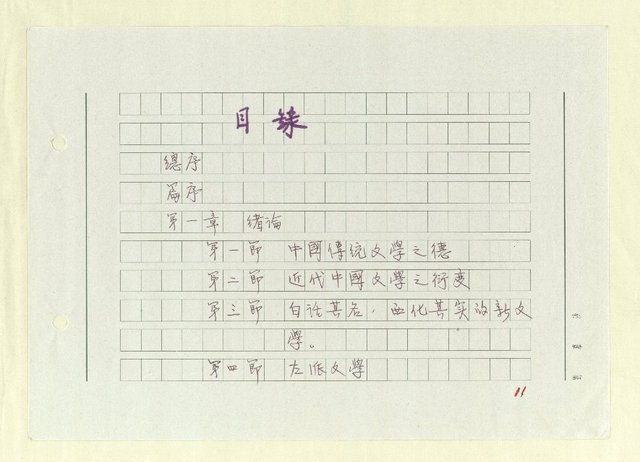 目錄
總序
篇序
第一章 緒論
第一節 中國傳統文學之德
第二節 近代中國文學之衍變
第三節 白話其名，西化其實的新文
學。
第四節 左派文學
11